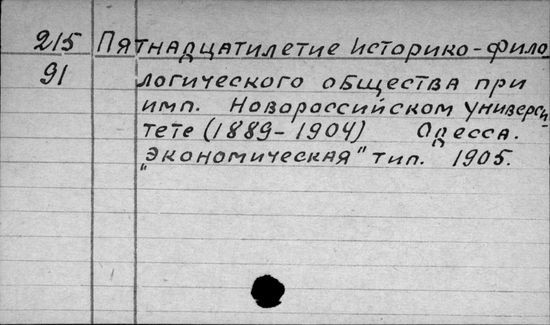 215 Пятнадцатилетие Историко-фило-
91 логического общества при
имп. Новороссийском универси-
тете (1889-1904) Одесса.
"Экономическая" тип. 1905.